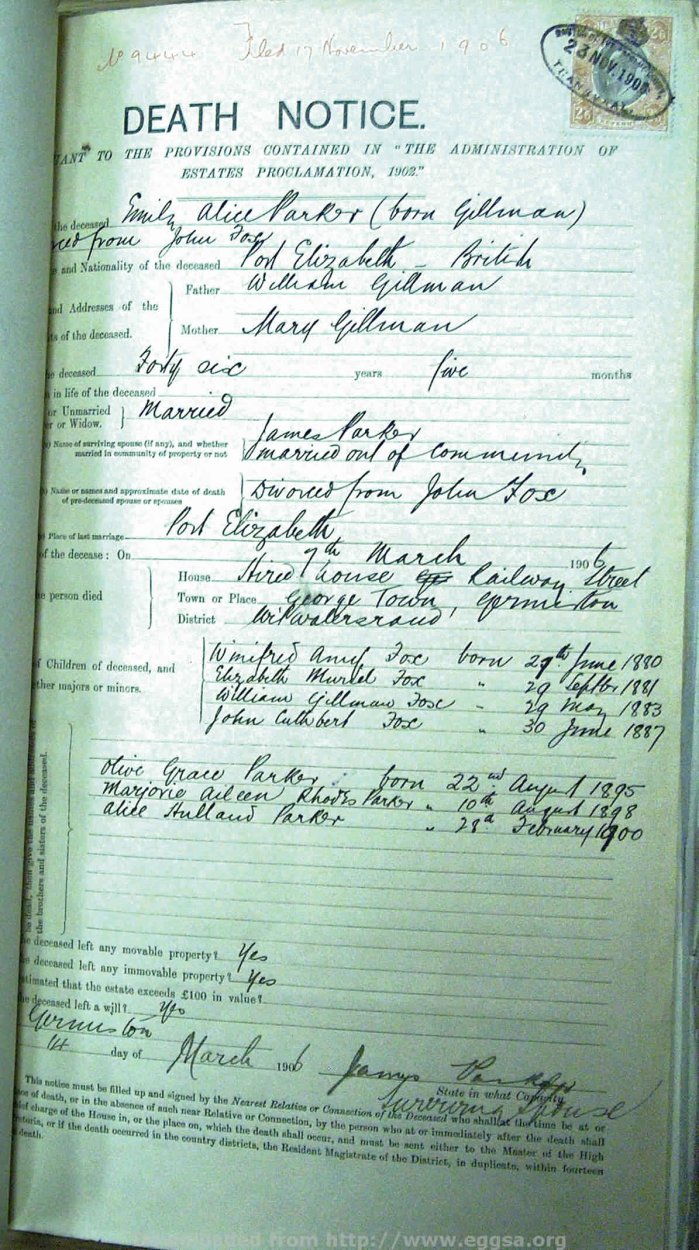 No 9444 Filed 17 November 1906
23 NOV. 1906
TRANSVAAL
DEATH NOTICE.
UANT TO THE PROVISIONS CONTAINED IN "THE ADMINISTRATION OF
ESTATES PROCLAMATION, 1902."
the deceased Emily Alice Parker (born Gillman)
ced from John Fox
and Nationality of the deceased Port Elizabeth - British
Father William Gillman
nd Addresses of the
ts of the deceased.
Mother Mary Gillman
e deceased Forty six years five months
in life of the deceased
or Unmarried
er or Widow. Married
Name of surviving spouse (if any), and whether
married in community of property or not
James Parker
married out of Community
Name or names and approximate date of death
of pre-deceased spouse or spouses
Divorced from John Fox
Place of last marriage Port Elizabeth
of the decease: On 7th March 1906
House Hired house Railway Street
e person died
Town or Place George Town, Germiston
District Witwatersrand
Winifred Amy Fox born 27th June 1880
f Children of deceased, and
Elizabeth Muriel Fox " 29 Septbr 1881
ther majors or minors.
William Gillman Fox - 29 May 1883
John Cuthbert Fox " 30 June 1887
Olive Grace Parker born 22nd August 1895
Marjorie Aileen Rhodes Parker " 10th August 1898
Alice Hulland Parker " 28d February 1900
be dead, then give the names and addresses of
the brothers and sisters of the deceased.
e deceased left any movable property? Yes
e deceased left any immovable property? Yes
stimated that the estate exceeds £100 in value?
he deceased left a will? Yes
Germiston
14 day of March 1906 James Parker
State in what Capacity
Surviving Spouse
This notice must be filled up and signed by the Nearest Relative or Connection of the Deceased who shall at the time be at or
ce of death, or in the absence of such near Relative or Connection, by the person who at or immediately after the death shall
ief charge of the House in, or the place on, which the death shall occur, and must be sent either to the Master of the High
retoria, or if the death occurred in the country districts, the Resident Magistrate of the District, in duplicate, within fourteen
death.
from http://www.eggsa.org